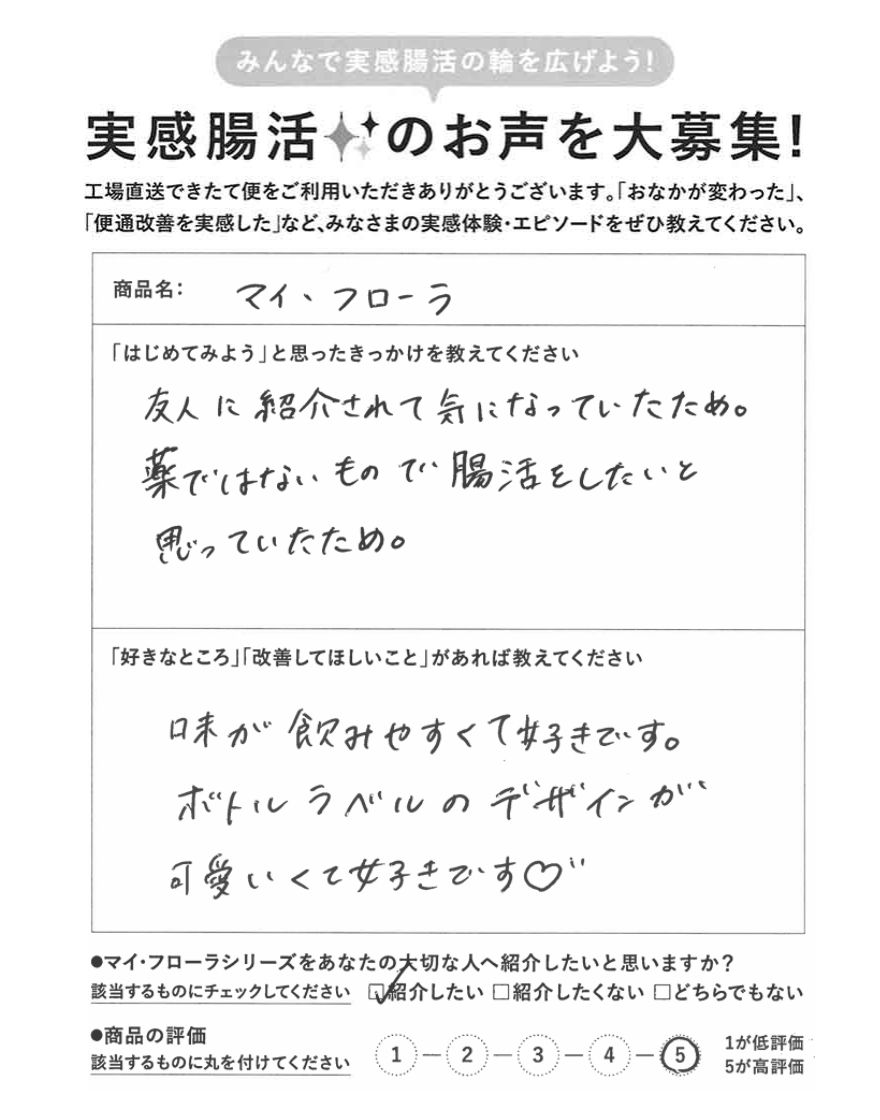 みんなで実感腸活の輪を広げよう!
実感腸活のお声を大募集!
工場直送できたて便をご利用いただきありがとうございます。「おなかが変わった」、
「便通改善を実感した」など、みなさまの実感体験・エピソードをぜひ教えてください。
商品名: マイ、フローラ
「はじめてみよう」と思ったきっかけを教えてください
友人に紹介されて気になっていたため。
薬ではないもので腸活をしたいと
思っていたため。
「好きなところ」「改善してほしいこと」があれば教えてください
味が飲みやすくて好きです。
ボトルラベルのデザインが
可愛いくて好きです♡
●マイ・フローラシリーズをあなたの大切な人へ紹介したいと思いますか?
該当するものにチェックしてください ☑紹介したい □紹介したくない □どちらでもない
●商品の評価
該当するものに丸を付けてください 1 — 2 — 3 — 4 — 5
1が低評価
5が高評価